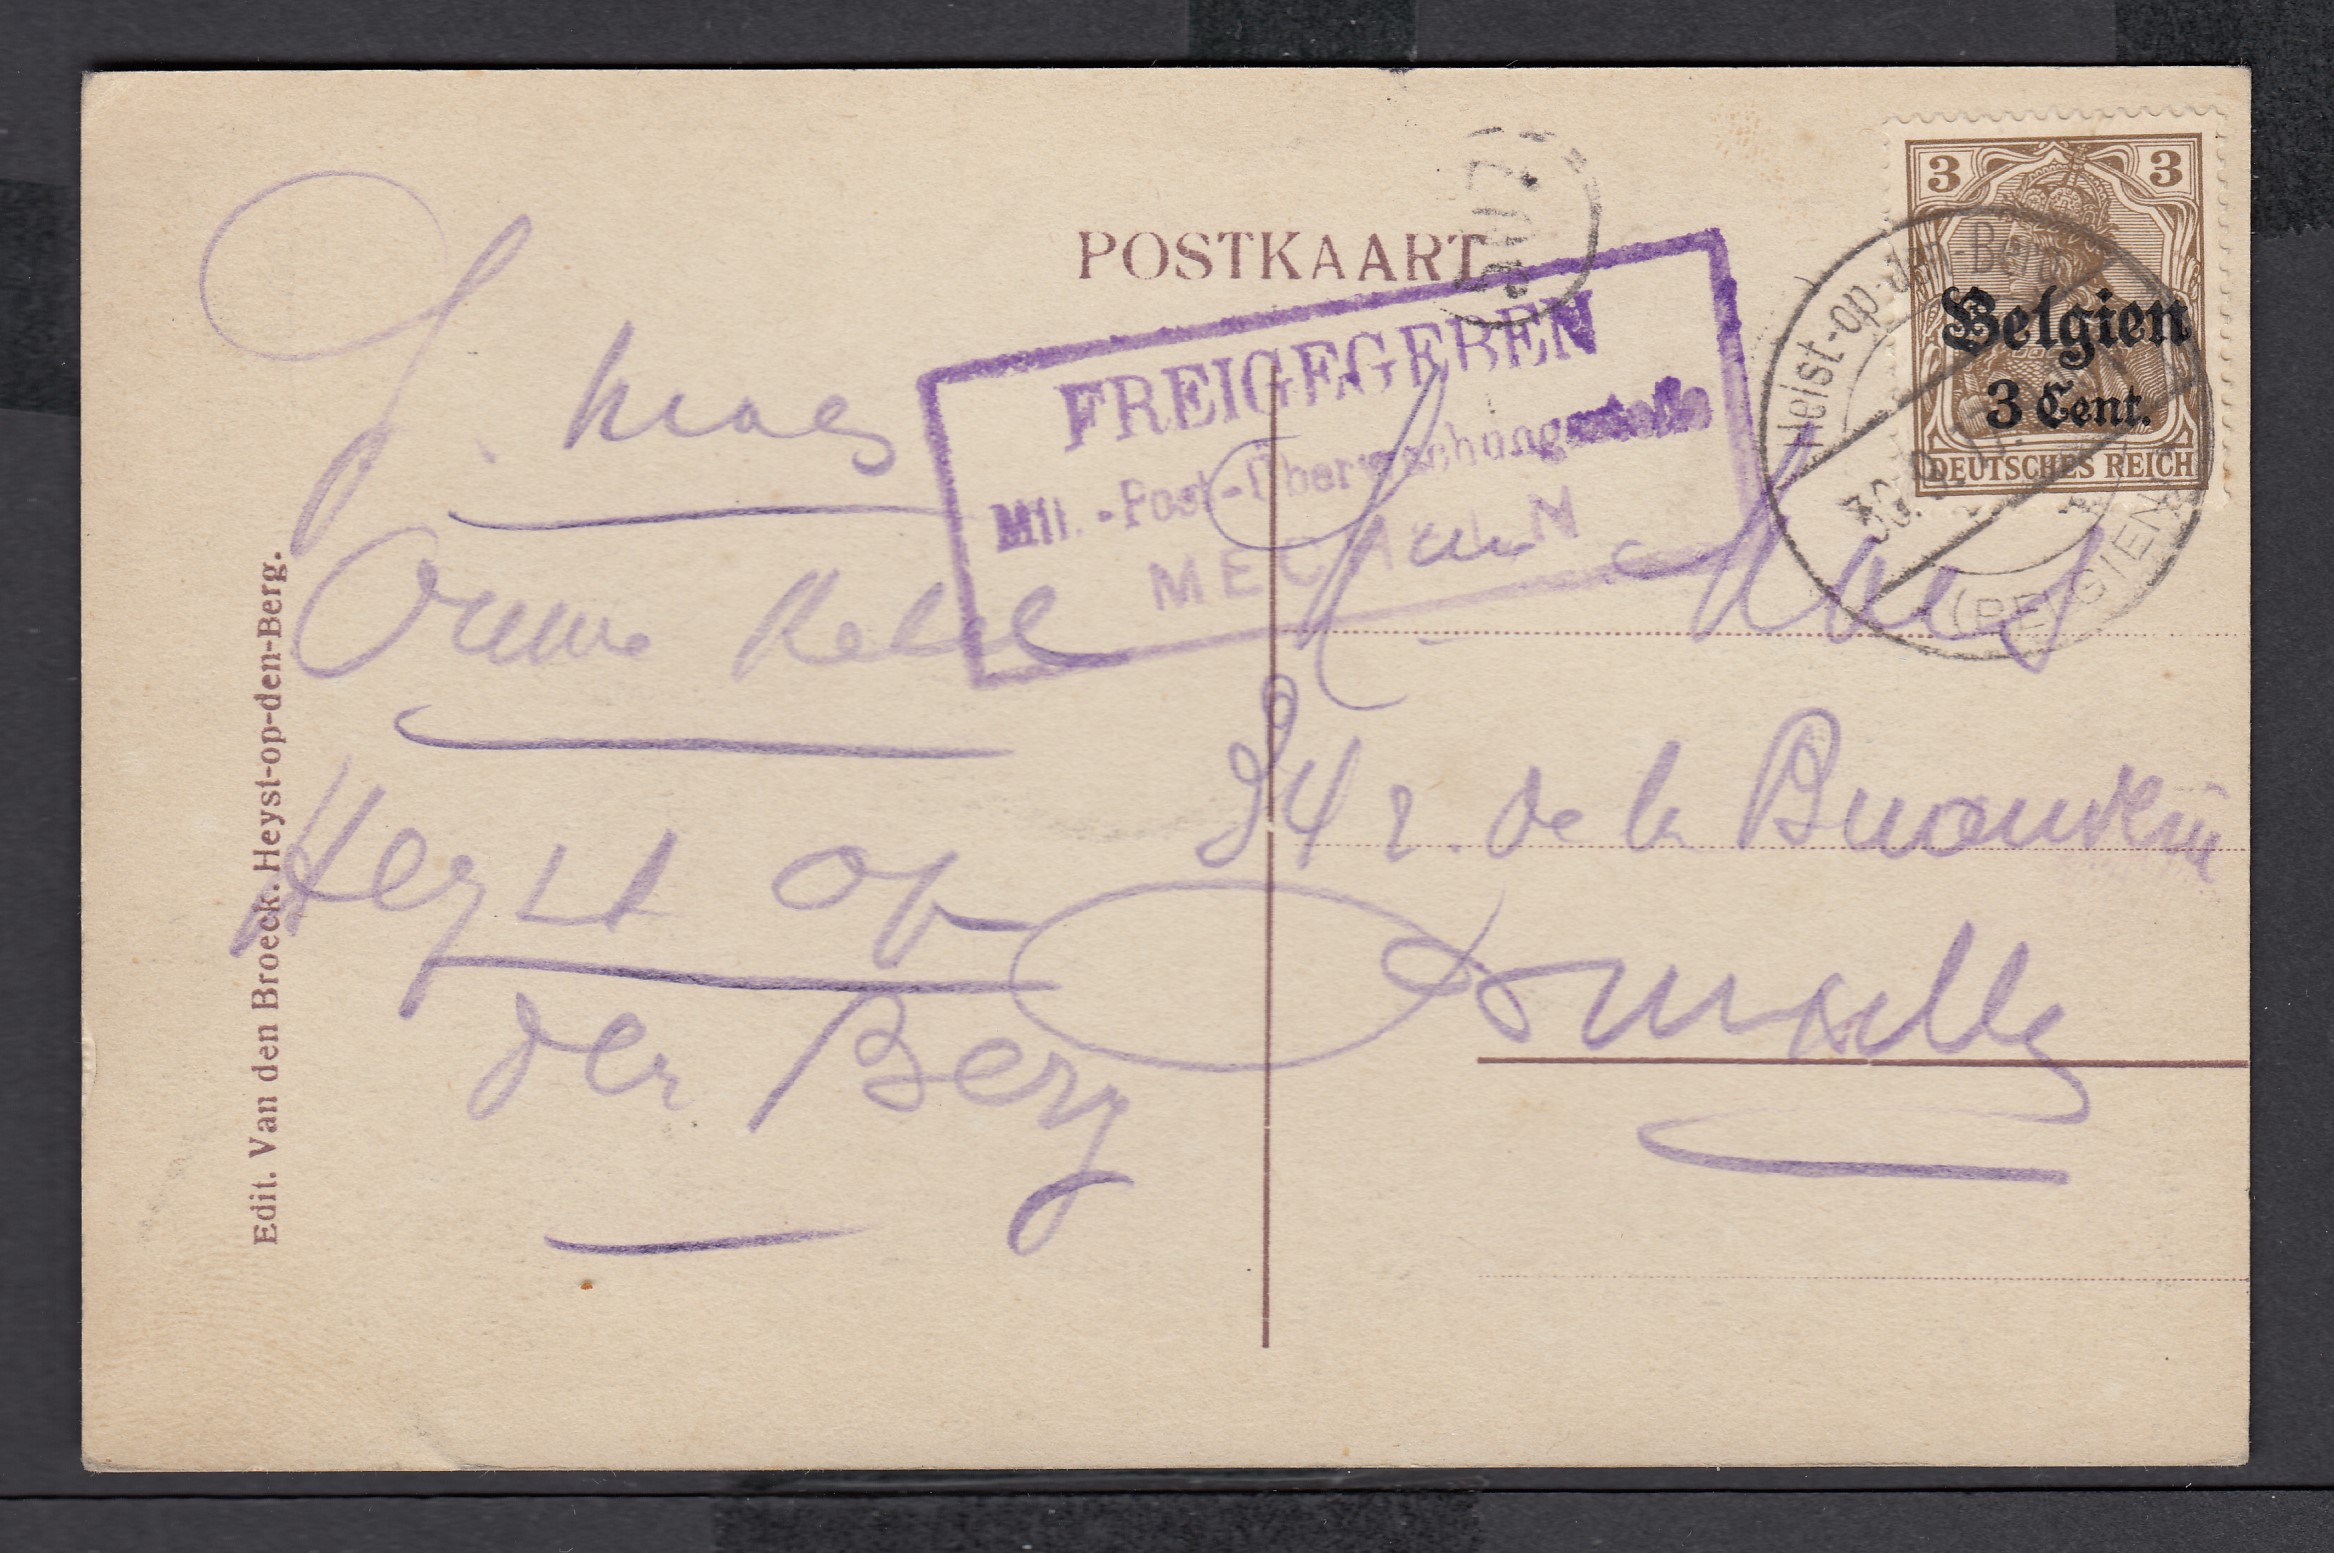 POSTKAART
3 3
Belgien
3 Cent.
DEUTSCHES REICH
Heist-op-den-Berg
30.
(BELGIEN)
FREIGEGEBEN
Mil.-Post-Überwachungsstelle
MECHELN
J. Maes
Heyst op
den Berg
Maes
34 r. de la
Bruxelles
Edit. Van den Broeck. Heyst-op-den-Berg.